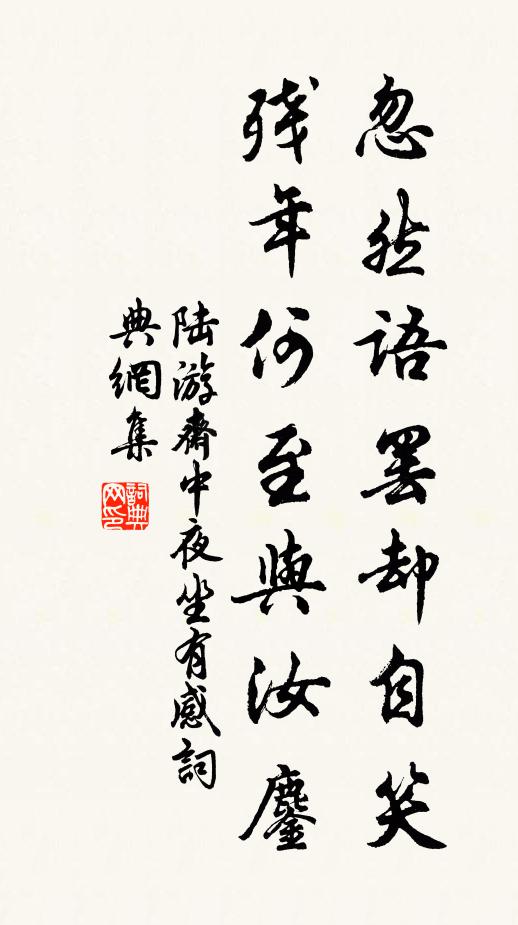 忽然語罷却自笑
殘年何至與汝鏖
陆游齋中夜坐有感詞
典網集
詞典
网印